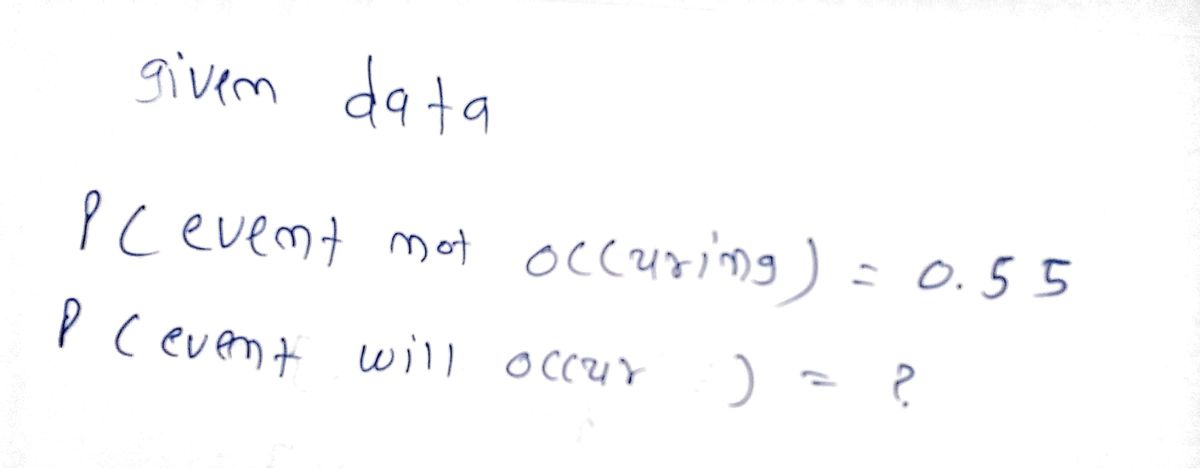 given data
P(event not occuring) = 0.55
P(event will occur) = ?